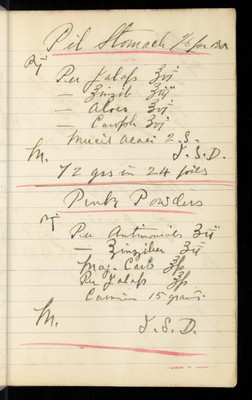 Pil Stomach
Rx
Pu Jalap ʒvj
— Zingib ʒiij
— Aloes ʒvj
— Caroph ʒvj
Mucil Acaci 2. S.
M. F. S. D.
72 grs in 24 pills
Pink Powders
Rx
Pu Antimonials ʒiij
— Zingiber ʒij
Mag. Carb ℥ſs
Pu Jalap ℥ſs
Carmin 15 grains.
M. F. S. D.